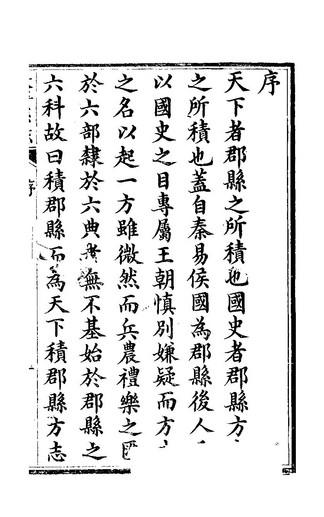 序
天下者郡縣之所積也國史者郡縣方
之所積也蓋自秦易侯國為郡縣後人
以國史之目專屬王朝慎別嫌疑而方
之名以起一方雖微然而兵農禮樂之
於六部隸於六典者無不基始於郡縣之
六科故曰積郡縣而為天下積郡縣方志
序